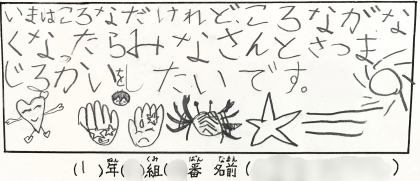 いまはころなだけれど、ころながな
くなったらみなさんとさつま
じろかいをしたいです。
(1)年( )組( )番 名前( )
くみ ばん なまえ